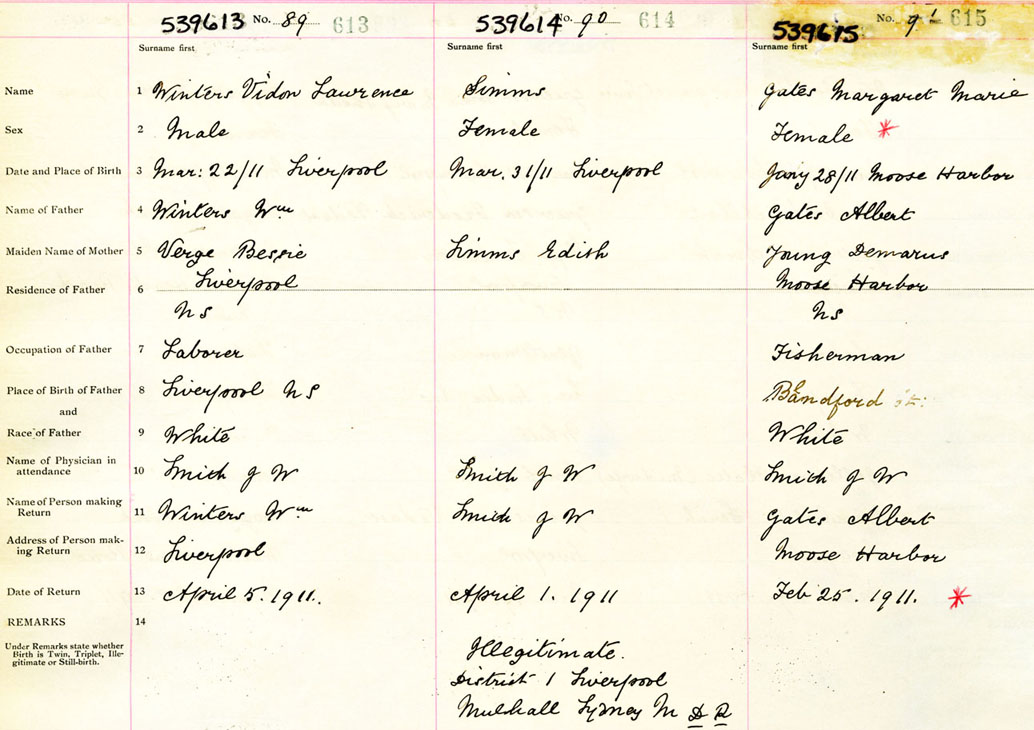 539613 No. 89 613 539614 No. 90 614 539615 No. 91 615
Surname first Surname first Surname first
Name 1 Winters Vidon Lawrence Simms Gates Margaret Marie
Sex 2 Male Female Female *
Date and Place of Birth 3 Mar: 22/11 Liverpool Mar. 31/11 Liverpool Jany 28/11 Moose Harbor
Name of Father 4 Winters Wm Gates Albert
Maiden Name of Mother 5 Verge Bessie Simms Edith Young Demarus
Residence of Father 6 Liverpool Moose Harbor
NS NS
Occupation of Father 7 Laborer Fisherman
Place of Birth of Father 8 Liverpool NS
and
Race of Father 9 White White
Name of Physician in
attendance 10 Smith J W Smith J W Smith J W
Name of Person making
Return 11 Winters Wm Smith J W Gates Albert
Address of Person mak-
ing Return 12 Liverpool Moose Harbor
Date of Return 13 April 5. 1911. April 1. 1911 Feb 25. 1911. *
REMARKS 14
Under Remarks state whether
Birth is Twin, Triplet, Ille-
gitimate or Still-birth.
Illegitimate.
District 1 Liverpool
Mulhall Sydney M D R